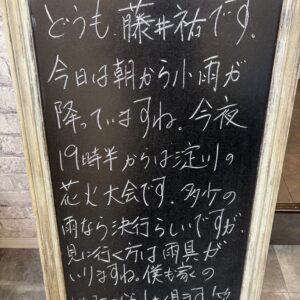 どうも、藤井祐です。
今日は朝から小雨が
降っていますね。今夜
19時半からは淀川の
花火大会です。多少の
雨なら決行らしいですが、
見に行く方は雨具が
いりますね。僕も家の